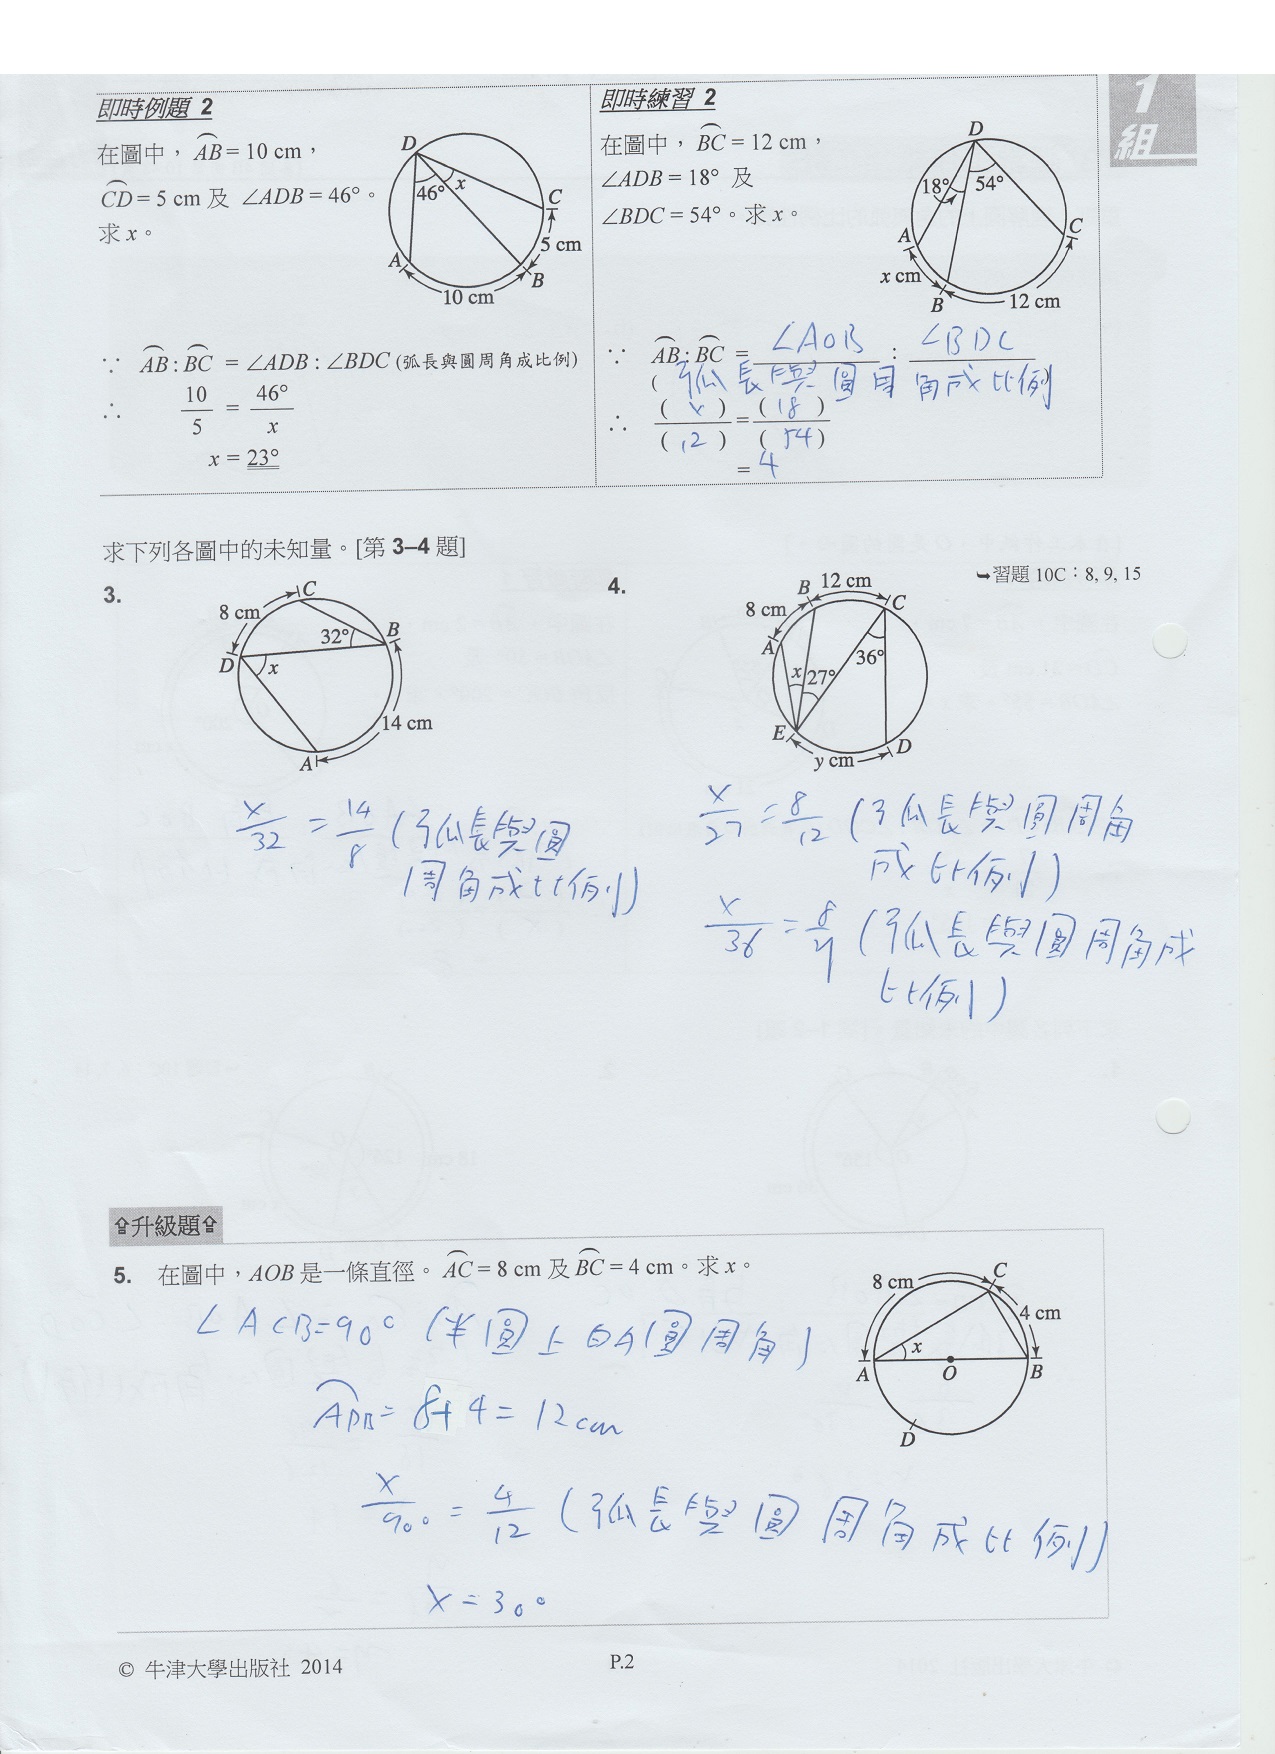 1
組
即時例題 2
在圖中，AB = 10 cm，
CD = 5 cm 及 ∠ADB = 46°。
求 x。
D
46°
x
C
5 cm
A
B
10 cm
∵ AB : BC = ∠ADB : ∠BDC (弧長與圓周角成比例)
∴ 10/5 = 46°/x
x = 23°
即時練習 2
在圖中，BC = 12 cm，
∠ADB = 18° 及
∠BDC = 54°。求 x。
D
18°
54°
A
C
x cm
B
12 cm
∵ AB : BC = ∠AOB : ∠BDC
( 弧長與圓周角成比例 )
∴ ( x )/( 12 ) = ( 18 )/( 54 )
= 4
求下列各圖中的未知量。[第 3–4 題]
➥習題 10C：8, 9, 15
3.
C
8 cm
32°
B
D
x
14 cm
A
x/32 = 14/8 (弧長與圓
周角成比例)
4.
B
12 cm
C
8 cm
A
36°
x
27°
E
D
y cm
x/27 = 8/12 (弧長與圓周角
成比例)
x/36 = 8/y (弧長與圓周角成
比例)
⇧升級題⇧
5. 在圖中，AOB 是一條直徑。AC = 8 cm 及 BC = 4 cm。求 x。
8 cm
C
4 cm
x
A
O
B
D
∠ACB=90° (半圓上的圓周角)
ADB = 8+4 = 12cm
x/90° = 4/12 (弧長與圓周角成比例)
x = 30°
© 牛津大學出版社 2014
P.2